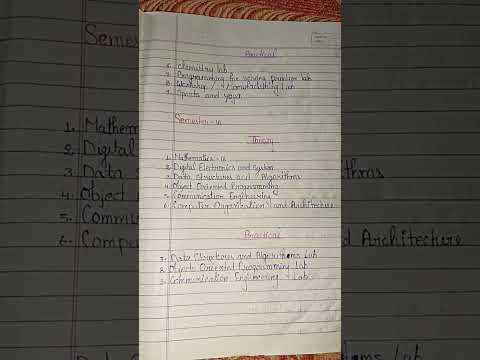 Practical
6. Chemistry lab
7. Programming for solving problem lab
8. Workshop / Manufacturing Lab
9. Sports and yoga
Semester - III
Theory
1. Mathematics - III
2. Digital Electronics and System
3. Data Structures and Algorithms
4. Object Oriented Programming
5. Communication Engineering
6. Computer Organization and Architecture
Practical
1. Data Structures and Algorithms Lab
2. Object Oriented Programming Lab
3. Communication Engineering Lab